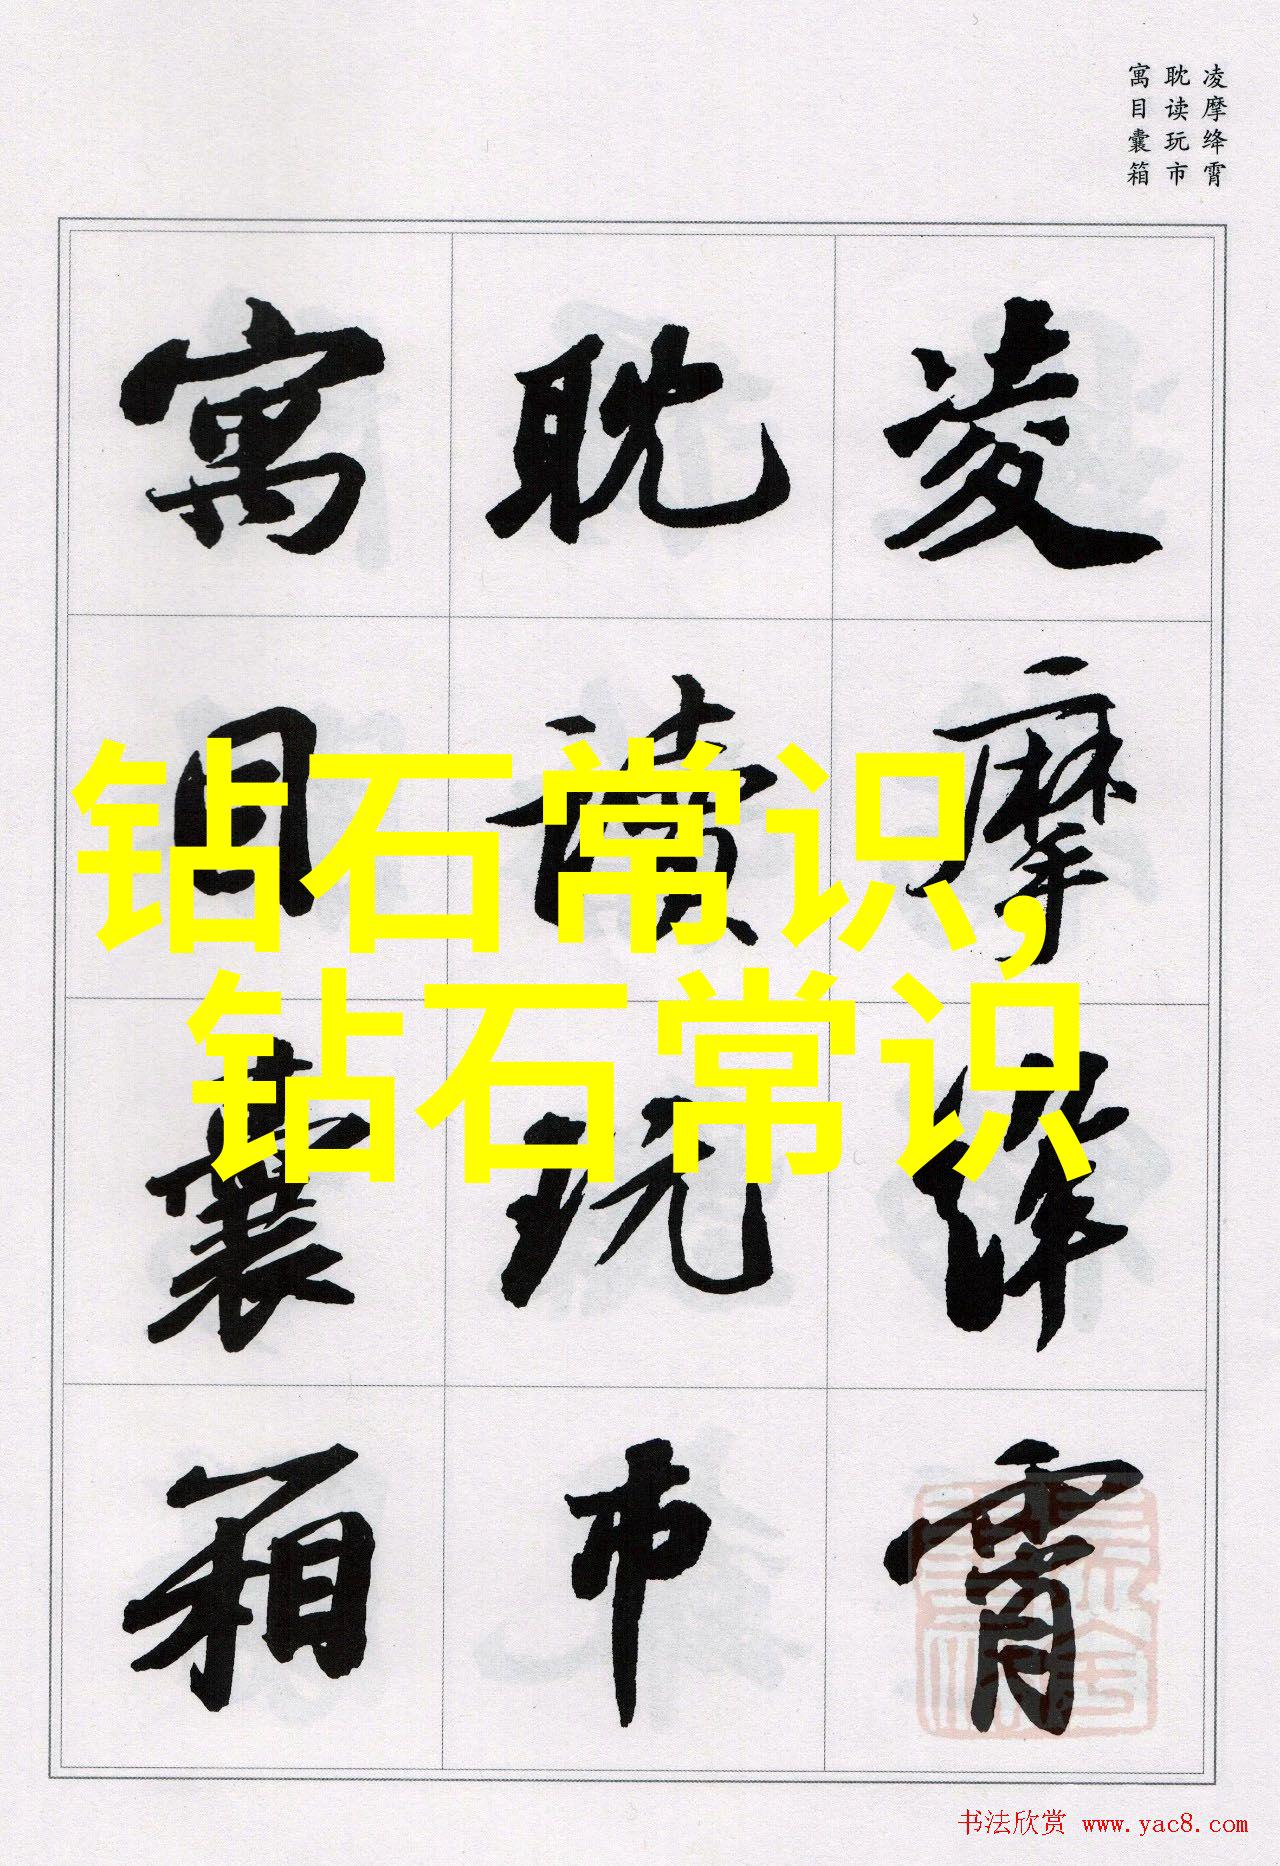 凌摩绛霄
耽读玩市
寓目囊箱
凌摩絳霄
耽讀玩市
寓目囊箱
钻石常识,
钻石常识
书法欣赏 www.yac8.com